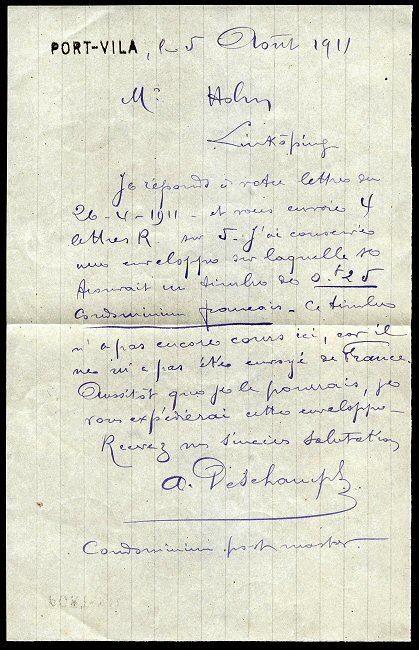 PORT-VILA, le 5 Août 1911
Mr Holm
Linköping
Je réponds à votre lettre du
26-4-1911 - et vous envoie 4
lettres R. sur 5. J'ai conservé
une enveloppe sur laquelle se
trouvait un timbre de 0.f25
Condominium français - Ce timbre
n'a pas encore cours ici, car il
ne m'a pas été envoyé de France.
Aussitôt que je le pourrais, je
vous expédierai cette enveloppe -
Recevez mes sincères salutations
A. Deschamps
Condominium post master.